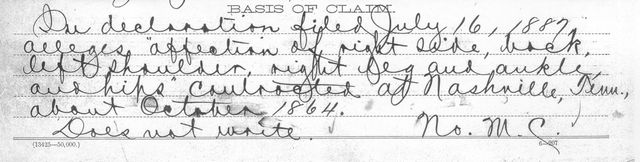 BASIS OF CLAIM.
In declaration filed July 16, 1887,
alleges "affection of right side, back,
left shoulder, right leg and ankle,
and hips" contracted at Nashville, Tenn.,
about October 1864.
Does not write. No. M. C.
(13425—50,000.) 6—207